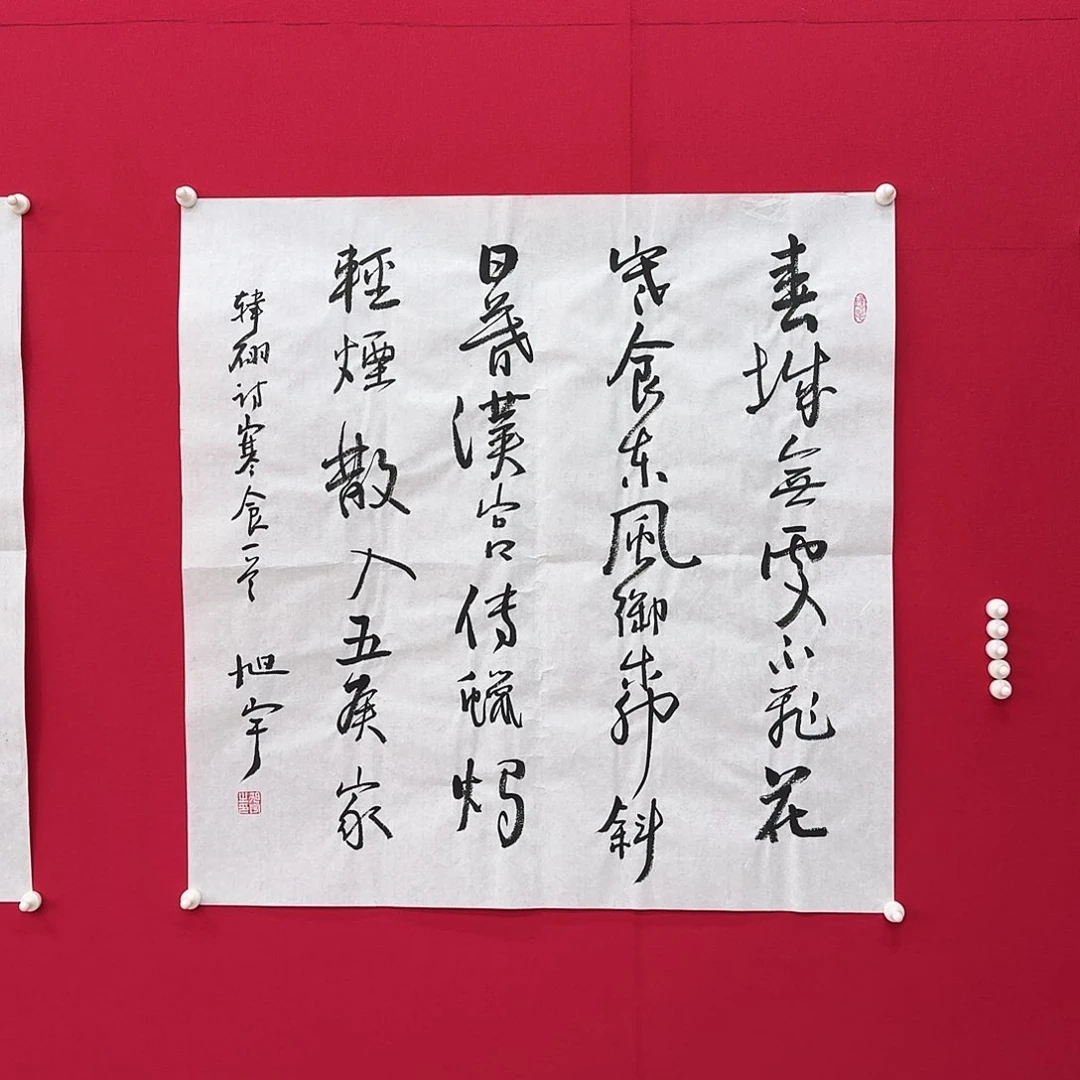 春城無處不飛花
寒食東風御柳斜
日暮漢宮傳蠟燭
輕煙散入五侯家
韓翃詩寒食一首 旭宇